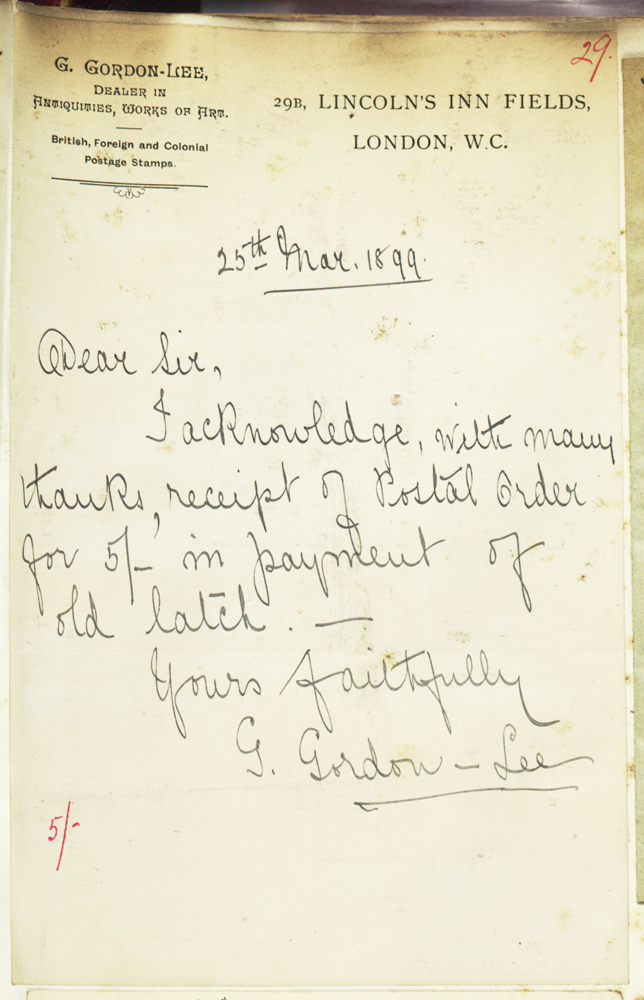 29.
G. GORDON-LEE,
DEALER IN
ANTIQUITIES, WORKS OF ART.
British, Foreign and Colonial
Postage Stamps.
29B, LINCOLN'S INN FIELDS,
LONDON, W.C.
25th Mar. 1899.
Dear Sir,
I acknowledge, with many
thanks, receipt of Postal Order
for 5/- in payment of
old latch. —
Yours faithfully
G. Gordon-Lee
5/-